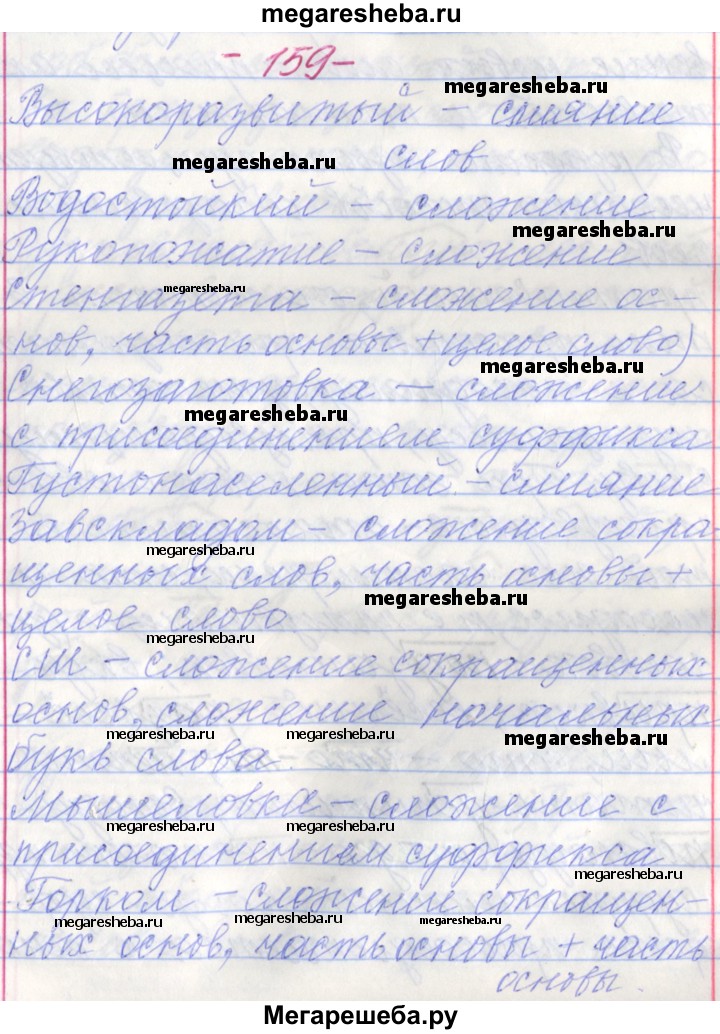 megaresheba.ru
- 159 -
Высокоразвитый - слияние
megaresheba.ru
megaresheba.ru
слов
Водостойкий - сложение
megaresheba.ru
Рукопожатие - сложение
megaresheba.ru
Стенгазета - сложение ос-
нов, часть основы + целое слово)
megaresheba.ru
Снегозаготовка - сложение
megaresheba.ru
с присоединением суффикса
Густонаселенный - слияние
Завскладом - сложение сокра
megaresheba.ru
щенных слов, часть основы +
megaresheba.ru
целое слово
megaresheba.ru
СШ - сложение сокращенных
основ, сложение начальных
megaresheba.ru
megaresheba.ru
megaresheba.ru
букв слова.
Мышеловка - сложение с
megaresheba.ru
megaresheba.ru
присоединением суффикса
megaresheba.ru
Горком - сложение сокращен-
megaresheba.ru
megaresheba.ru
megaresheba.ru
ных основ, часть основы + часть
основы.
Мегарешеба.ру